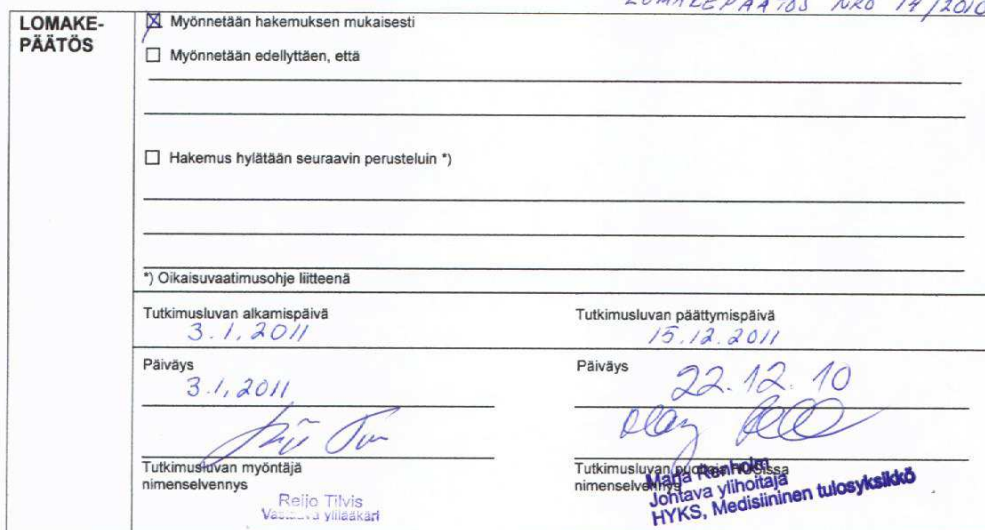 LOMAKEPÄÄTÖS NRO 14/2010
LOMAKE-
PÄÄTÖS
Myönnetään hakemuksen mukaisesti
Myönnetään edellyttäen, että
Hakemus hylätään seuraavin perusteluin *)
*) Oikaisuvaatimusohje liitteenä
Tutkimusluvan alkamispäivä
3.1.2011
Tutkimusluvan päättymispäivä
15.12.2011
Päiväys
3.1.2011
Päiväys
22.12.10
Tutkimusluvan myöntäjä
nimenselvennys
Reijo Tilvis
ylilääkäri
Tutkimusluvan
nimenselvennys
Marja Renholm
Johtava ylihoitaja
HYKS, Medisiininen tulosyksikkö